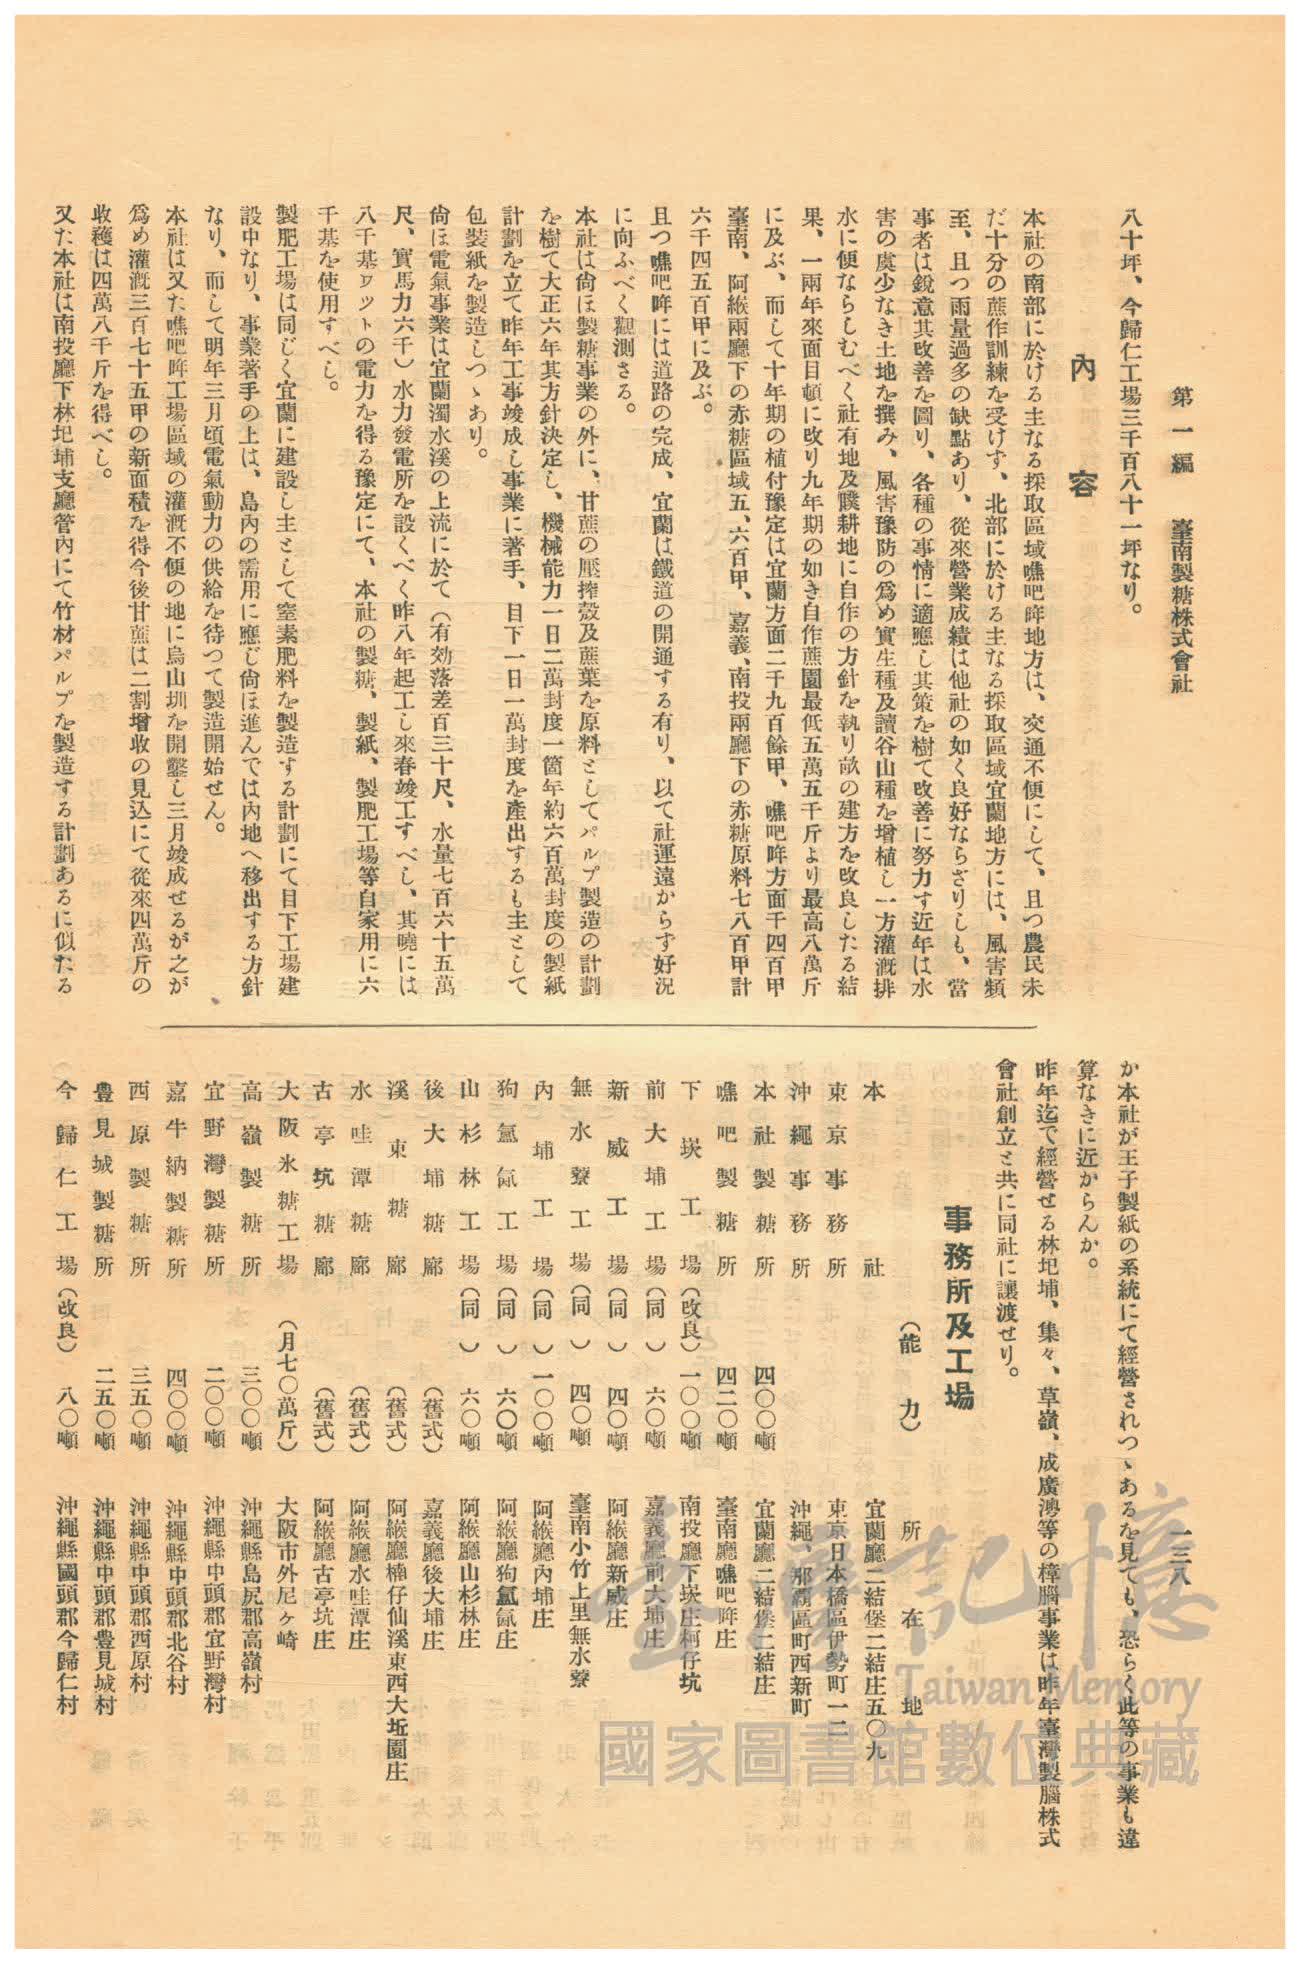 第一編　臺南製糖株式會社
一三八
八十坪、今歸仁工場三千百八十一坪なり。
內容
本社の南部に於ける主なる採取區域噍吧哖地方は、交通不便にして、且つ農民未
だ十分の蔗作訓練を受けず、北部に於ける主なる採取區域宜蘭地方には、風害頻
至、且つ雨量過多の缺點あり、從來營業成績は他社の如く良好ならざりしも、當
事者は銳意其改善を圖り、各種の事情に適應し其策を樹て改善に努力す近年は水
害の虞少なき土地を撰み、風害豫防の爲め實生種及讀谷山種を增植し一方灌漑排
水に便ならしむべく社有地及贌耕地に自作の方針を執り畝の建方を改良したる結
果、一兩年來面目頓に改り九年期の如き自作蔗園最低五萬五千斤より最高八萬斤
に及ぶ、而して十年期の植付豫定は宜蘭方面二千九百餘甲、噍吧哖方面千四百甲
臺南、阿緱兩廳下の赤糖區域五、六百甲、嘉義、南投兩廳下の赤糖原料七八百甲計
六千四五百甲に及ぶ。
且つ噍吧哖には道路の完成、宜蘭は鐵道の開通する有り、以て社運遠からず好況
に向ふべく觀測さる。
本社は尙ほ製糖事業の外に、甘蔗の壓搾殼及蔗葉を原料としてパルプ製造の計劃
を樹て大正六年其方針決定し、機械能力一日二萬封度一箇年約六百萬封度の製紙
計劃を立て昨年工事竣成し事業に著手、目下一日一萬封度を產出するも主として
包裝紙を製造しつゝあり。
尙ほ電氣事業は宜蘭濁水溪の上流に於て（有効落差百三十尺、水量七百六十五萬
尺、實馬力六千）水力發電所を設くべく昨八年起工し來春竣工すべし、其曉には
八千基ワットの電力を得る豫定にて、本社の製糖、製紙、製肥工場等自家用に六
千基を使用すべし。
製肥工場は同じく宜蘭に建設し主として窒素肥料を製造する計劃にて目下工場建
設中なり、事業著手の上は、島內の需用に應じ尙ほ進んでは內地へ移出する方針
なり、而して明年三月頃電氣動力の供給を待つて製造開始せん。
本社は又た噍吧哖工場區域の灌漑不便の地に烏山圳を開鑿し三月竣成せるが之が
爲め灌漑三百七十五甲の新面積を得今後甘蔗は二割增收の見込にて從來四萬斤の
收穫は四萬八千斤を得べし。
又た本社は南投廳下林圯埔支廳管內にて竹材パルプを製造する計劃あるに似たる
か本社が王子製紙の系統にて經營されつゝあるを見ても、恐らく此等の事業も違
算なきに近からんか。
昨年迄で經營せる林圯埔、集々、草嶺、成廣澳等の樟腦事業は昨年臺灣製腦株式
會社創立と共に同社に讓渡せり。
事務所及工場
（能力）　所在地
本社　宜蘭廳二結堡二結庄五〇九
東京事務所　東京日本橋區伊勢町一二
沖繩事務所　沖繩、那覇區町西新町
本社製糖所　四〇〇噸　宜蘭廳二結堡二結庄
噍吧製糖所　四二〇噸　臺南廳噍吧哖庄
下崁工場（改良）一〇〇噸　南投廳下崁庄柯仔坑
前大埔工場（同）　六〇噸　嘉義廳前大埔庄
新威工場（同）　四〇噸　阿緱廳新威庄
無水寮工場（同）　四〇噸　臺南小竹上里無水寮
內埔工場（同）　一〇〇噸　阿緱廳內埔庄
狗氳氤工場（同）　六〇噸　阿緱廳狗氳氤庄
山杉林工場（同）　六〇噸　阿緱廳山杉林庄
後大埔糖廍　（舊式）　嘉義廳後大埔庄
溪東糖廍　（舊式）　阿緱廳楠仔仙溪東西大坵園庄
水哇潭糖廍　（舊式）　阿緱廳水哇潭庄
古亭坑糖廍　（舊式）　阿緱廳古亭坑庄
大阪氷糖工場　（月七〇萬斤）　大阪市外尼ヶ崎
高嶺製糖所　三〇〇噸　沖繩縣島尻郡高嶺村
宜野灣製糖所　二〇〇噸　沖繩縣中頭郡宜野灣村
嘉牛納製糖所　四〇〇噸　沖繩縣中頭郡北谷村
西原製糖所　三五〇噸　沖繩縣中頭郡西原村
豊見城製糖所　二五〇噸　沖繩縣中頭郡豊見城村
今歸仁工場（改良）　八〇噸　沖繩縣國頭郡今歸仁村
臺灣記憶
Taiwan Memory
國家圖書館數位典藏